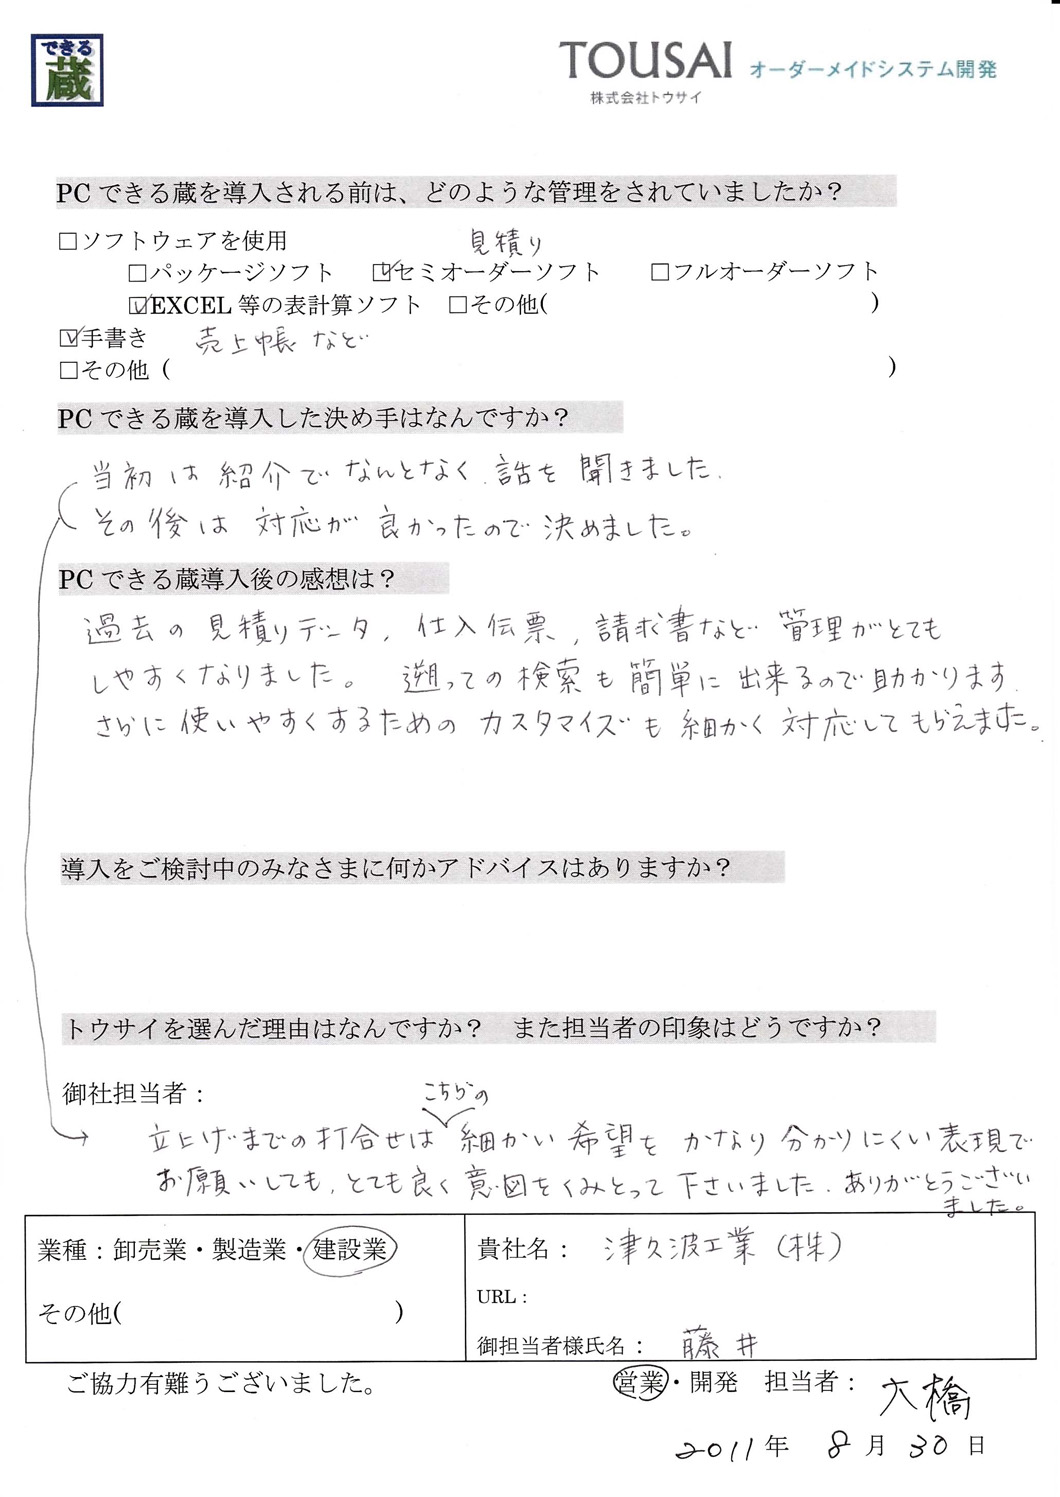 できる
蔵
TOUSAI オーダーメイドシステム開発
株式会社トウサイ
PCできる蔵を導入される前は、どのような管理をされていましたか?
□ソフトウェアを使用
見積り
□パッケージソフト ☑セミオーダーソフト □フルオーダーソフト
☑EXCEL等の表計算ソフト □その他( )
☑手書き 売上帳など
□その他 ( )
PCできる蔵を導入した決め手はなんですか?
当初は紹介でなんとなく話を聞きました.
その後は対応が良かったので決めました。
PCできる蔵導入後の感想は?
過去の見積りデータ, 仕入伝票, 請求書など管理がとても
しやすくなりました。 遡っての検索も簡単に出来るので助かります.
さらに使いやすくするためのカスタマイズも細かく対応してもらえました。
導入をご検討中のみなさまに何かアドバイスはありますか?
トウサイを選んだ理由はなんですか? また担当者の印象はどうですか?
御社担当者:
こちらの
→ 立上げまでの打合せは細かい希望をかなり分かりにくい表現で
お願いしても, とても良く意図をくみとって下さいました. ありがとうござい
ました。
業種:卸売業・製造業・建設業
その他( )
貴社名: 津久波工業(株)
URL:
御担当者様氏名: 藤井
ご協力有難うございました。
営業・開発 担当者: 大橋
2011年 8月 30日